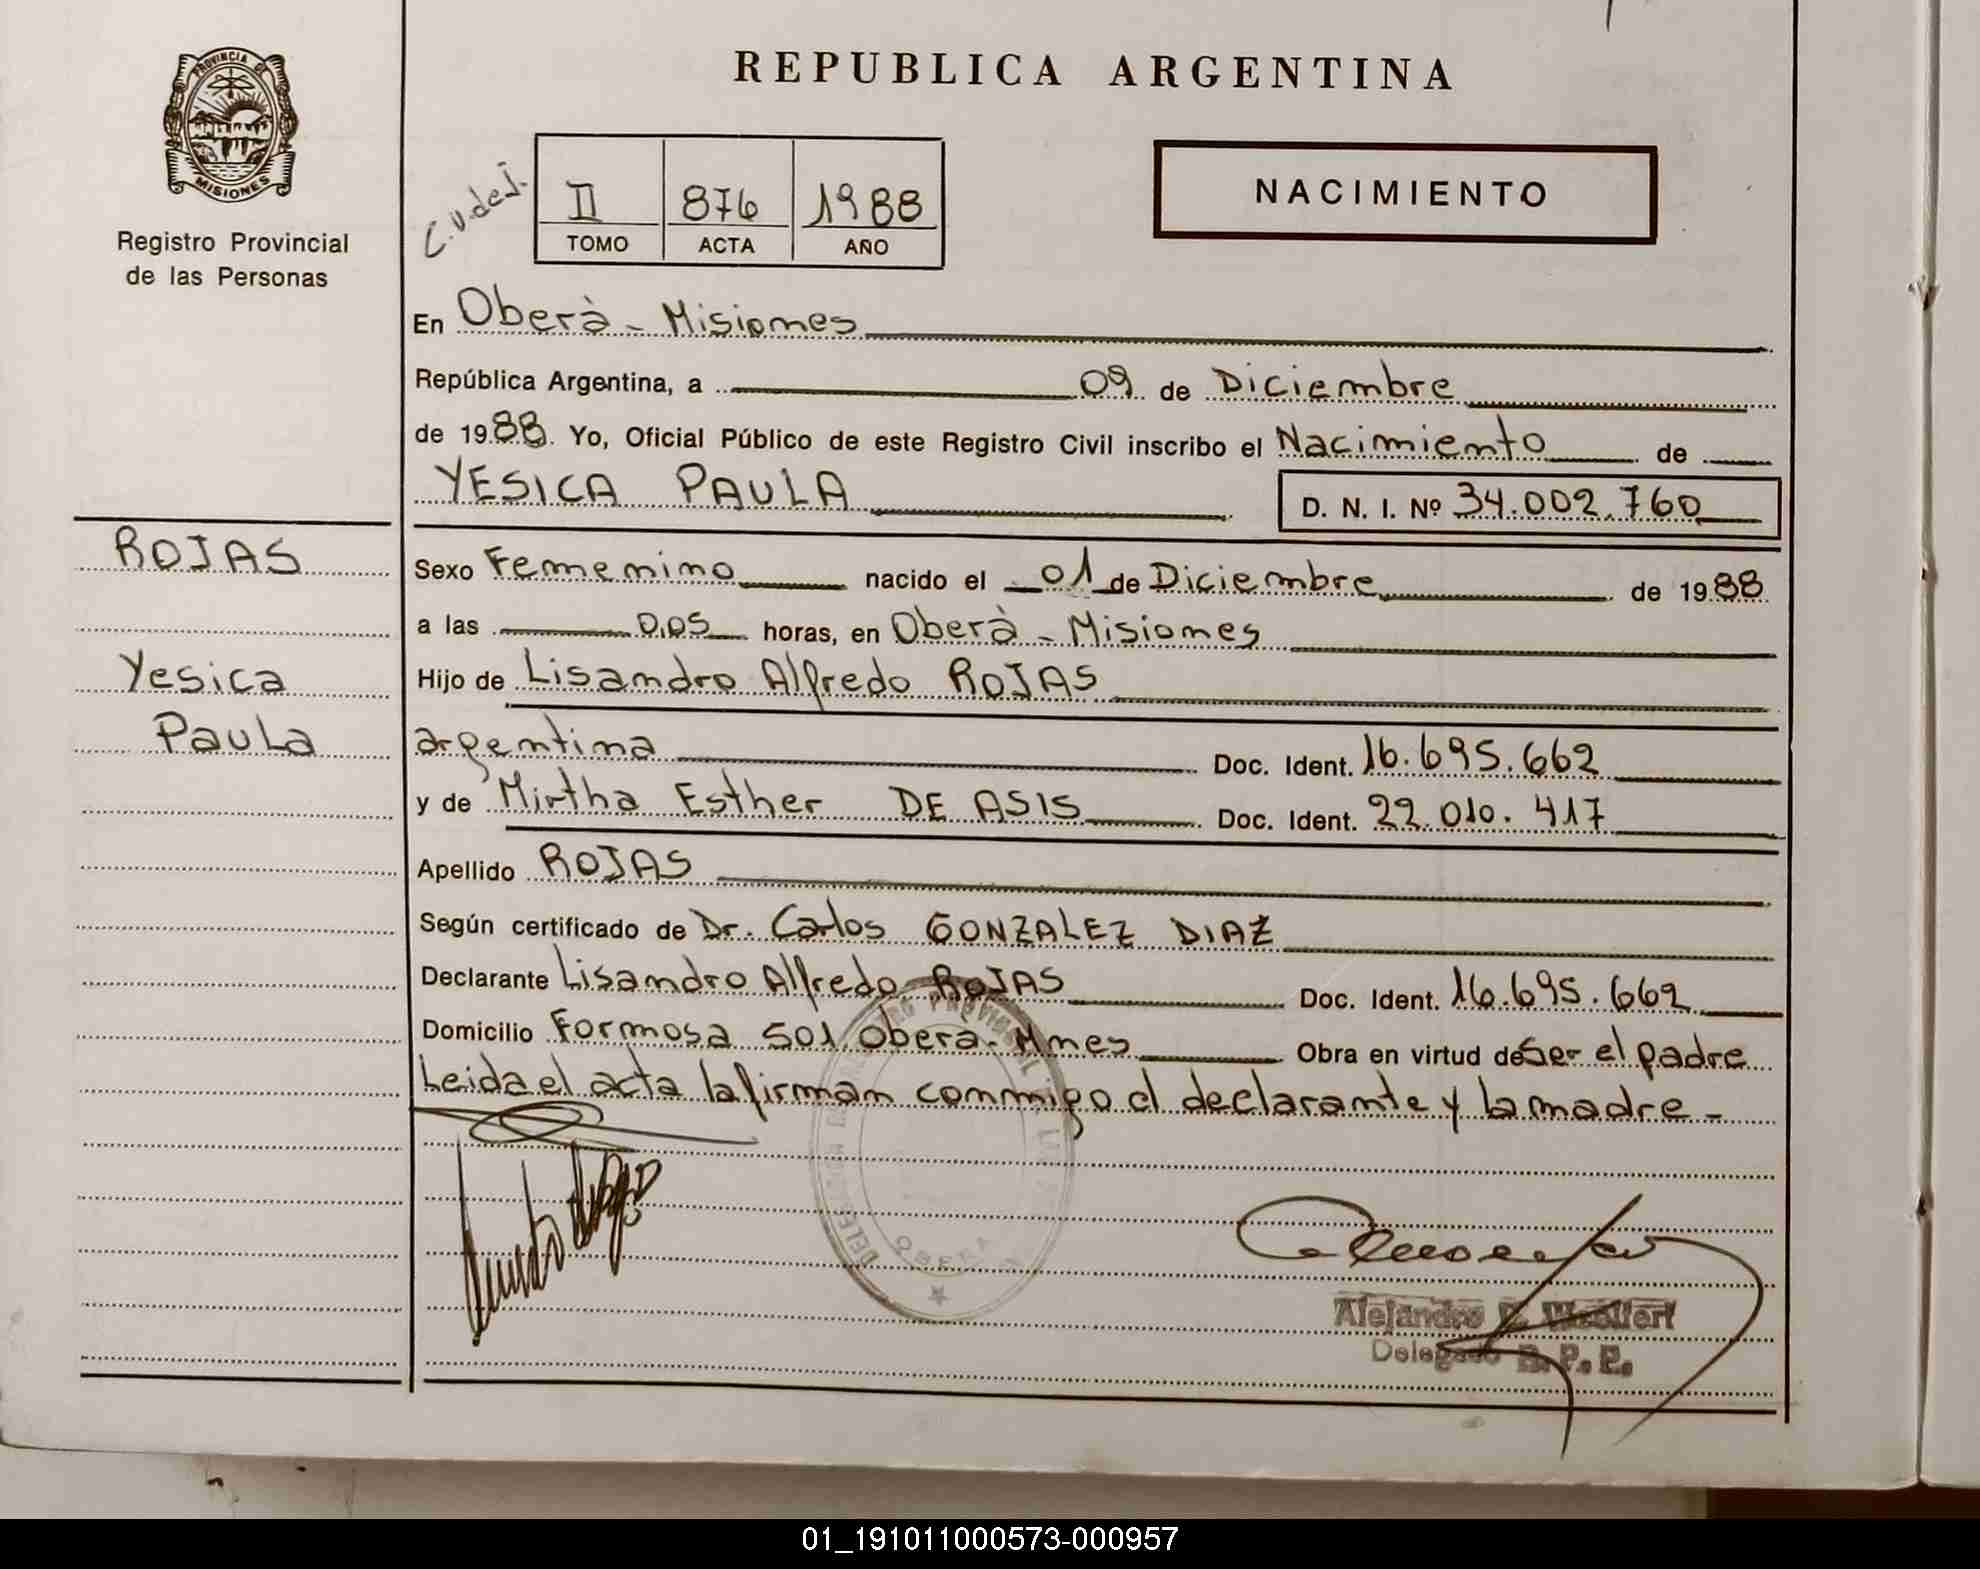 PROVINCIA DE
MISIONES
Registro Provincial
de las Personas
REPUBLICA ARGENTINA
II 876 1988
TOMO ACTA AÑO
NACIMIENTO
En Oberà - Misiones
República Argentina, a 09 de Diciembre
de 1988. Yo, Oficial Público de este Registro Civil inscribo el Nacimiento de
YESICA PAULA D. N. I. Nº 34.002.760
ROJAS
Yesica
Paula
Sexo Femenino nacido el 01 de Diciembre de 1988
a las 0,05 horas, en Oberà - Misiones
Hijo de Lisandro Alfredo ROJAS
argentina Doc. Ident. 16.695.662
y de Mirtha Esther DE ASIS Doc. Ident. 22.010.417
Apellido ROJAS
Según certificado de Dr. Carlos GONZALEZ DIAZ
Declarante Lisandro Alfredo ROJAS Doc. Ident. 16.695.662
Domicilio Formosa 501 Obera. Mnes Obra en virtud de Ser el padre
Leida el acta la firman conmigo el declarante y la madre -
OBERA
Alejandro
Delegado R. P. P.
01_191011000573-000957